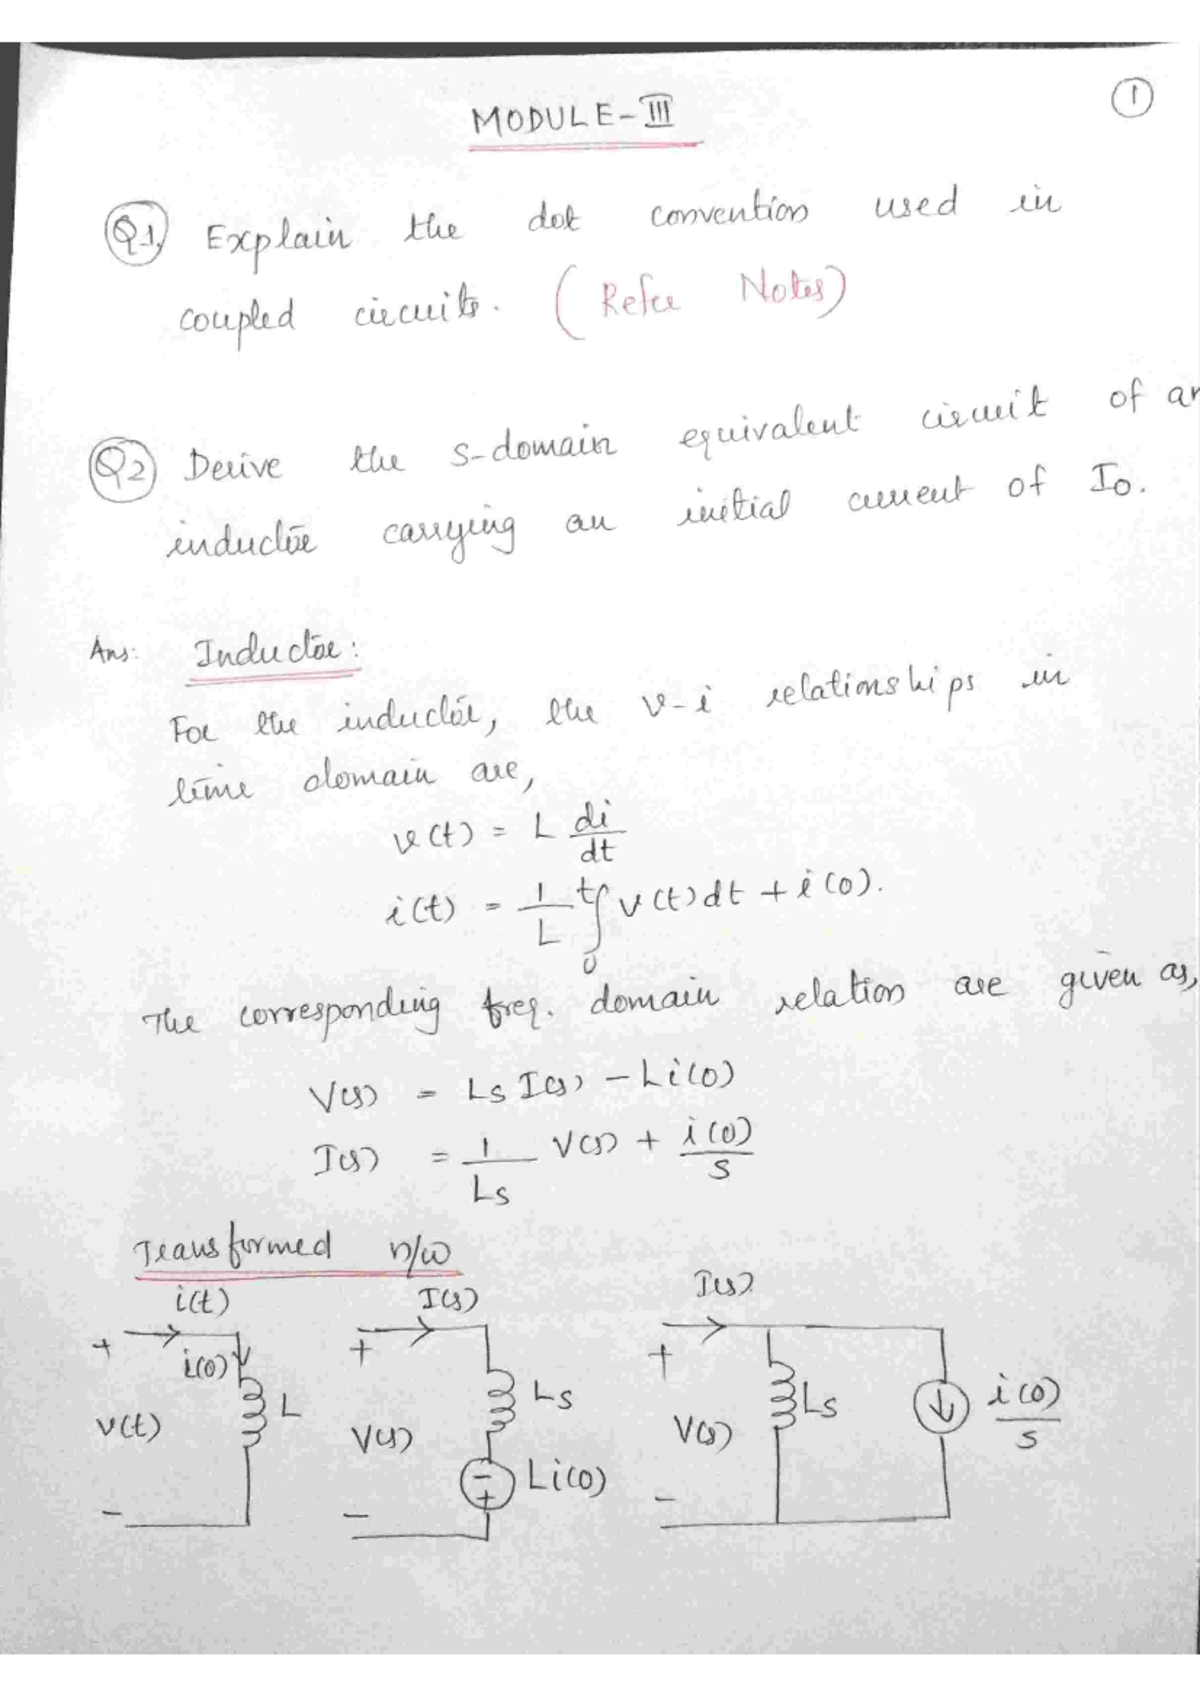 1
MODULE-III
Q1, Explain the dot convention used in
coupled circuits. (Refer Notes)
Q2 Derive the s-domain equivalent circuit of an
inductor carrying an initial current of I0.
Ans: Inductor:
For the inductor, the v-i relationships in
time domain are,
v(t) = L di/dt
i(t) = 1/L t∫0 v(t)dt + i(0).
The corresponding freq. domain relation are given as,
V(s) = Ls I(s) - Li(0)
I(s) = 1/Ls V(s) + i(0)/s
Transformed n/w
i(t) I(s) I(s)
+ i(0) + +
v(t) L V(s) Ls V(s) Ls i(0)/s
- + Li(0)
- - -